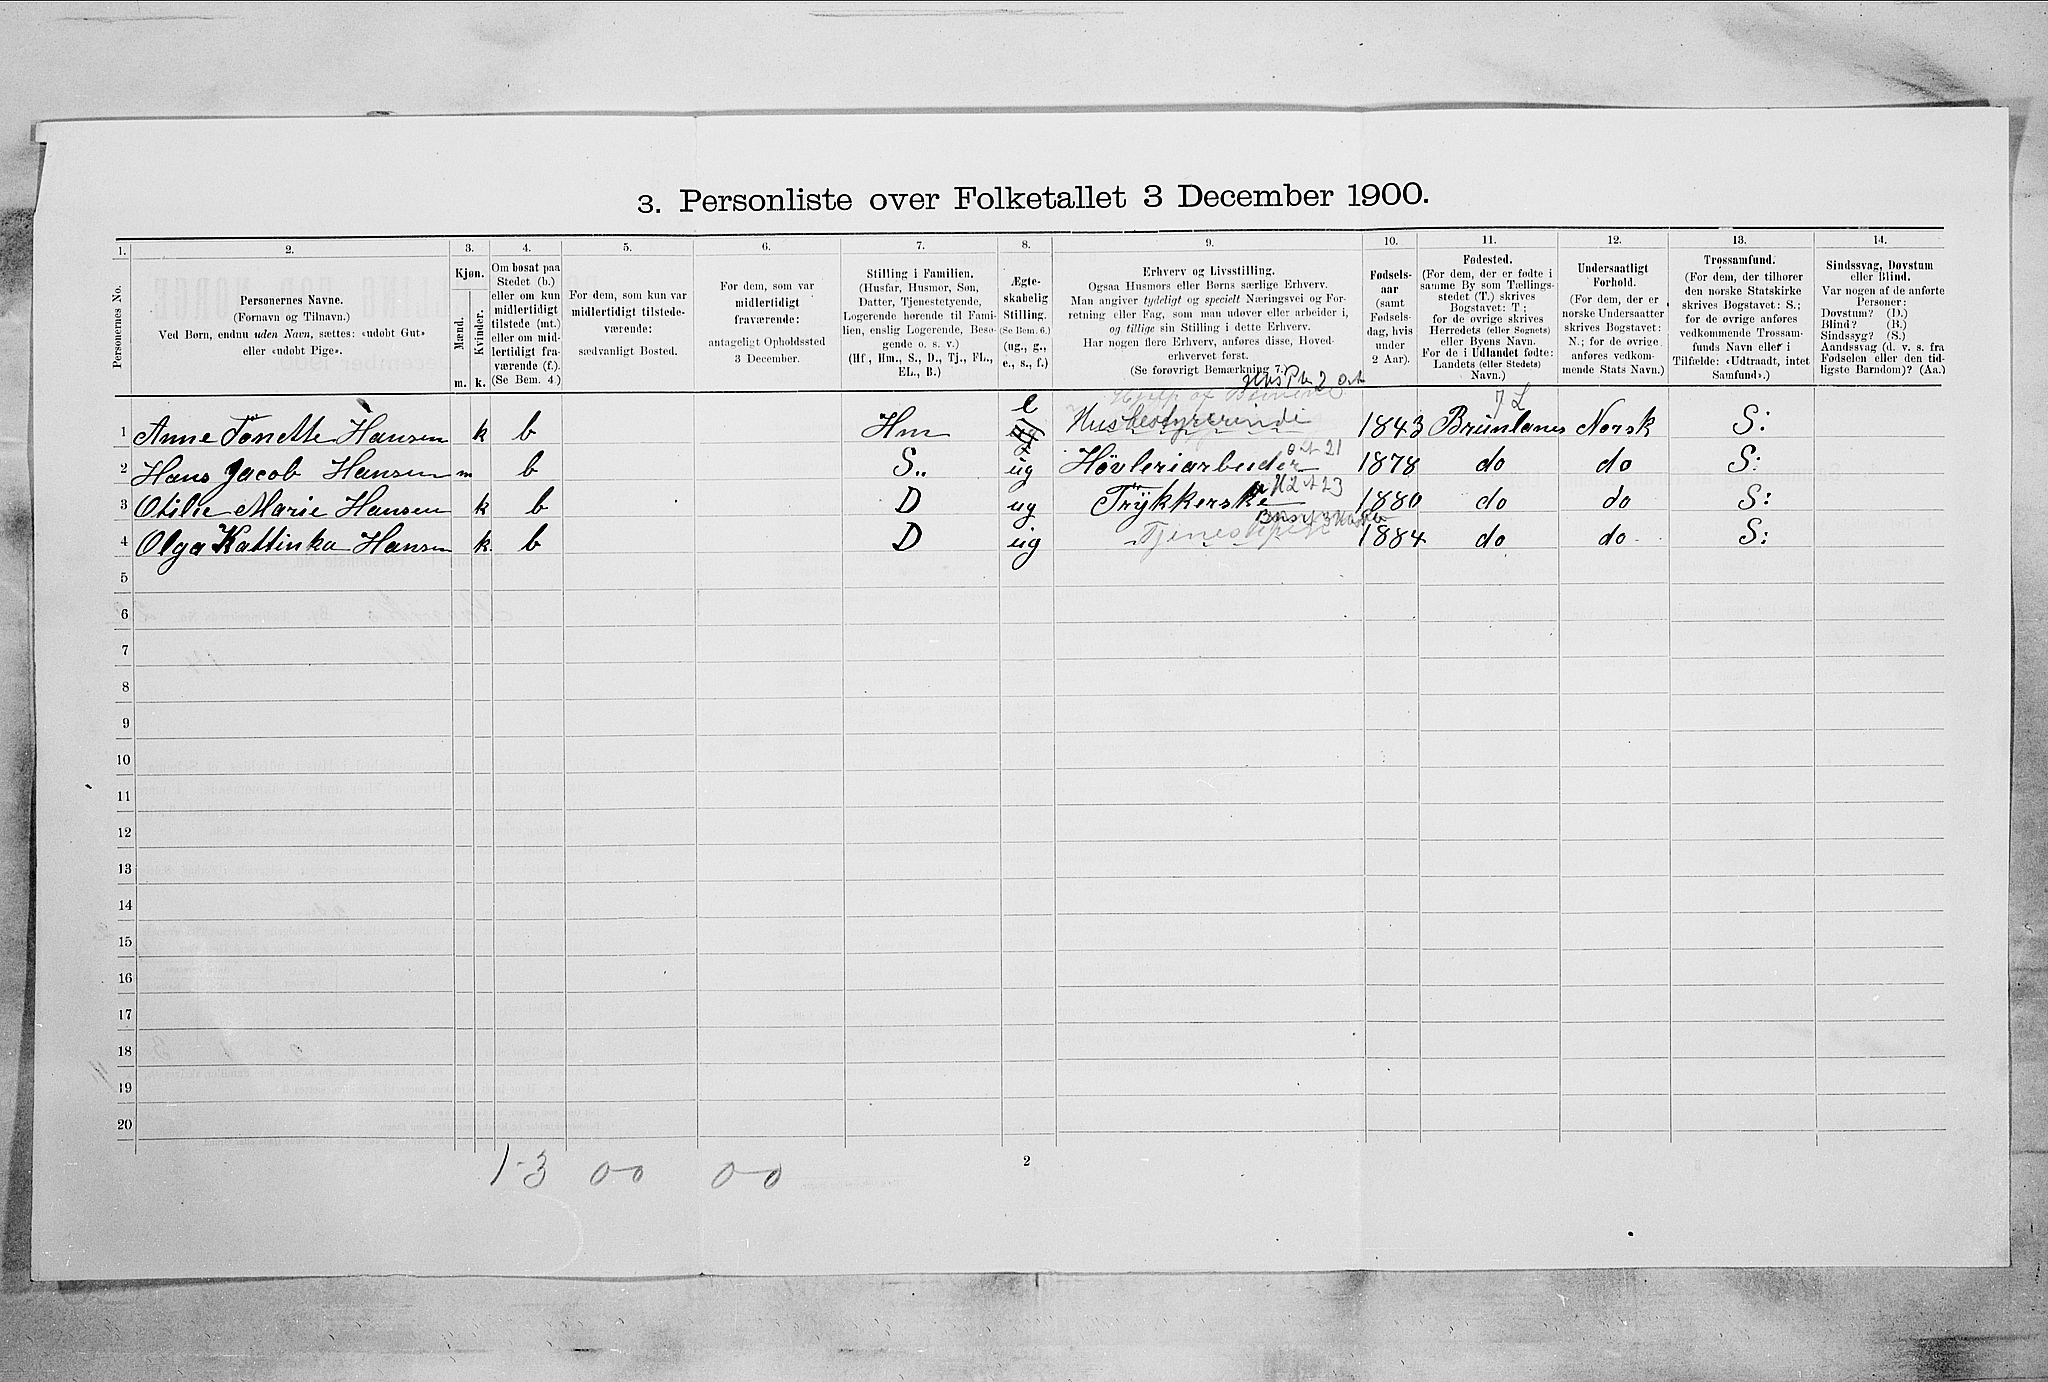 3. Personliste over Folketallet 3 December 1900.
1. 2. 3. 4. 5. 6. 7. 8. 9. 10. 11. 12. 13. 14.
Personernes No.
Personernes Navne.
(Fornavn og Tilnavn.)
Ved Børn, endnu uden Navn, sættes: «udøbt Gut»
eller «udøbt Pige».
Kjøn.
Mænd.
Kvinder.
m. k.
Om bosat paa
Stedet (b.)
eller om kun
midlertidigt
tilstede (mt.)
eller om mid-
lertidigt fra-
værende (f.).
(Se Bem. 4.)
For dem, som kun var
midlertidigt tilstede-
værende:
sædvanligt Bosted.
For dem, som var
midlertidigt
fraværende:
antageligt Opholdssted
3 December.
Stilling i Familien.
(Husfar, Husmor, Søn,
Datter, Tjenestetyende,
Logerende hørende til Fami-
lien, enslig Logerende, Besø-
gende o. s. v.)
(Hf, Hm., S., D., Tj., FL.,
EL., B.)
Ægte-
skabelig
Stilling.
(Se Bem. 6.)
(ug., g.,
e., s., f.)
Erhverv og Livsstilling.
Ogsaa Husmors eller Børns særlige Erhverv.
Man angiver tydeligt og specielt Næringsvei og For-
retning eller Fag, som man udøver eller arbeider i,
og tillige sin Stilling i dette Erhverv.
Har nogen flere Erhverv, anføres disse, Hoved-
erhvervet først.
(Se forøvrigt Bemærkning 7.)
Fødsels-
aar
(samt
Fødsels-
dag, hvis
under
2 Aar).
Fødested.
(For dem, der er fødte i
samme By som Tællings-
stedet (T.) skrives
Bogstavet: T;
for de øvrige skrives
Herredets (eller Sognets)
eller Byens Navn.
For de i Udlandet fødte:
Landets (eller Stedets)
Navn.)
Undersaatligt
Forhold.
(For dem, der er
norske Undersaatter
skrives Bogstavet:
N.; for de øvrige
anføres vedkom-
mende Stats Navn.)
Trossamfund.
(For dem, der tilhører
den norske Statskirke
skrives Bogstavet: S.;
for de øvrige anføres
vedkommende Trossam-
funds Navn eller i
Tilfælde: «Udtraadt, intet
Samfund».)
Sindssvag, Døvstum
eller Blind.
Var nogen af de anførte
Personer:
Døvstum? (D.)
Blind? (B.)
Sindssyg? (S.)
Aandssvag (d. v. s. fra
Fødselen eller den tid-
ligste Barndom)? (Aa.)
1 Anne Tonette Hansen k b Hm e ug Husbestyrerinde 1843 Brunlanes Norsk S:
2 Hans Jacob Hansen m b S.. ug Høvleriarbeider 1878 do do S:
3 Otilie Marie Hansen k b D ug Trykkerske 1880 do do S:
4 Olga Kattinka Hansen k b D ug Tjenestepige 1884 do do S:
5
6
7
8
9
10
11
12
13
14
15
16
17
18
19
20
1-3 0-0 0-0
2